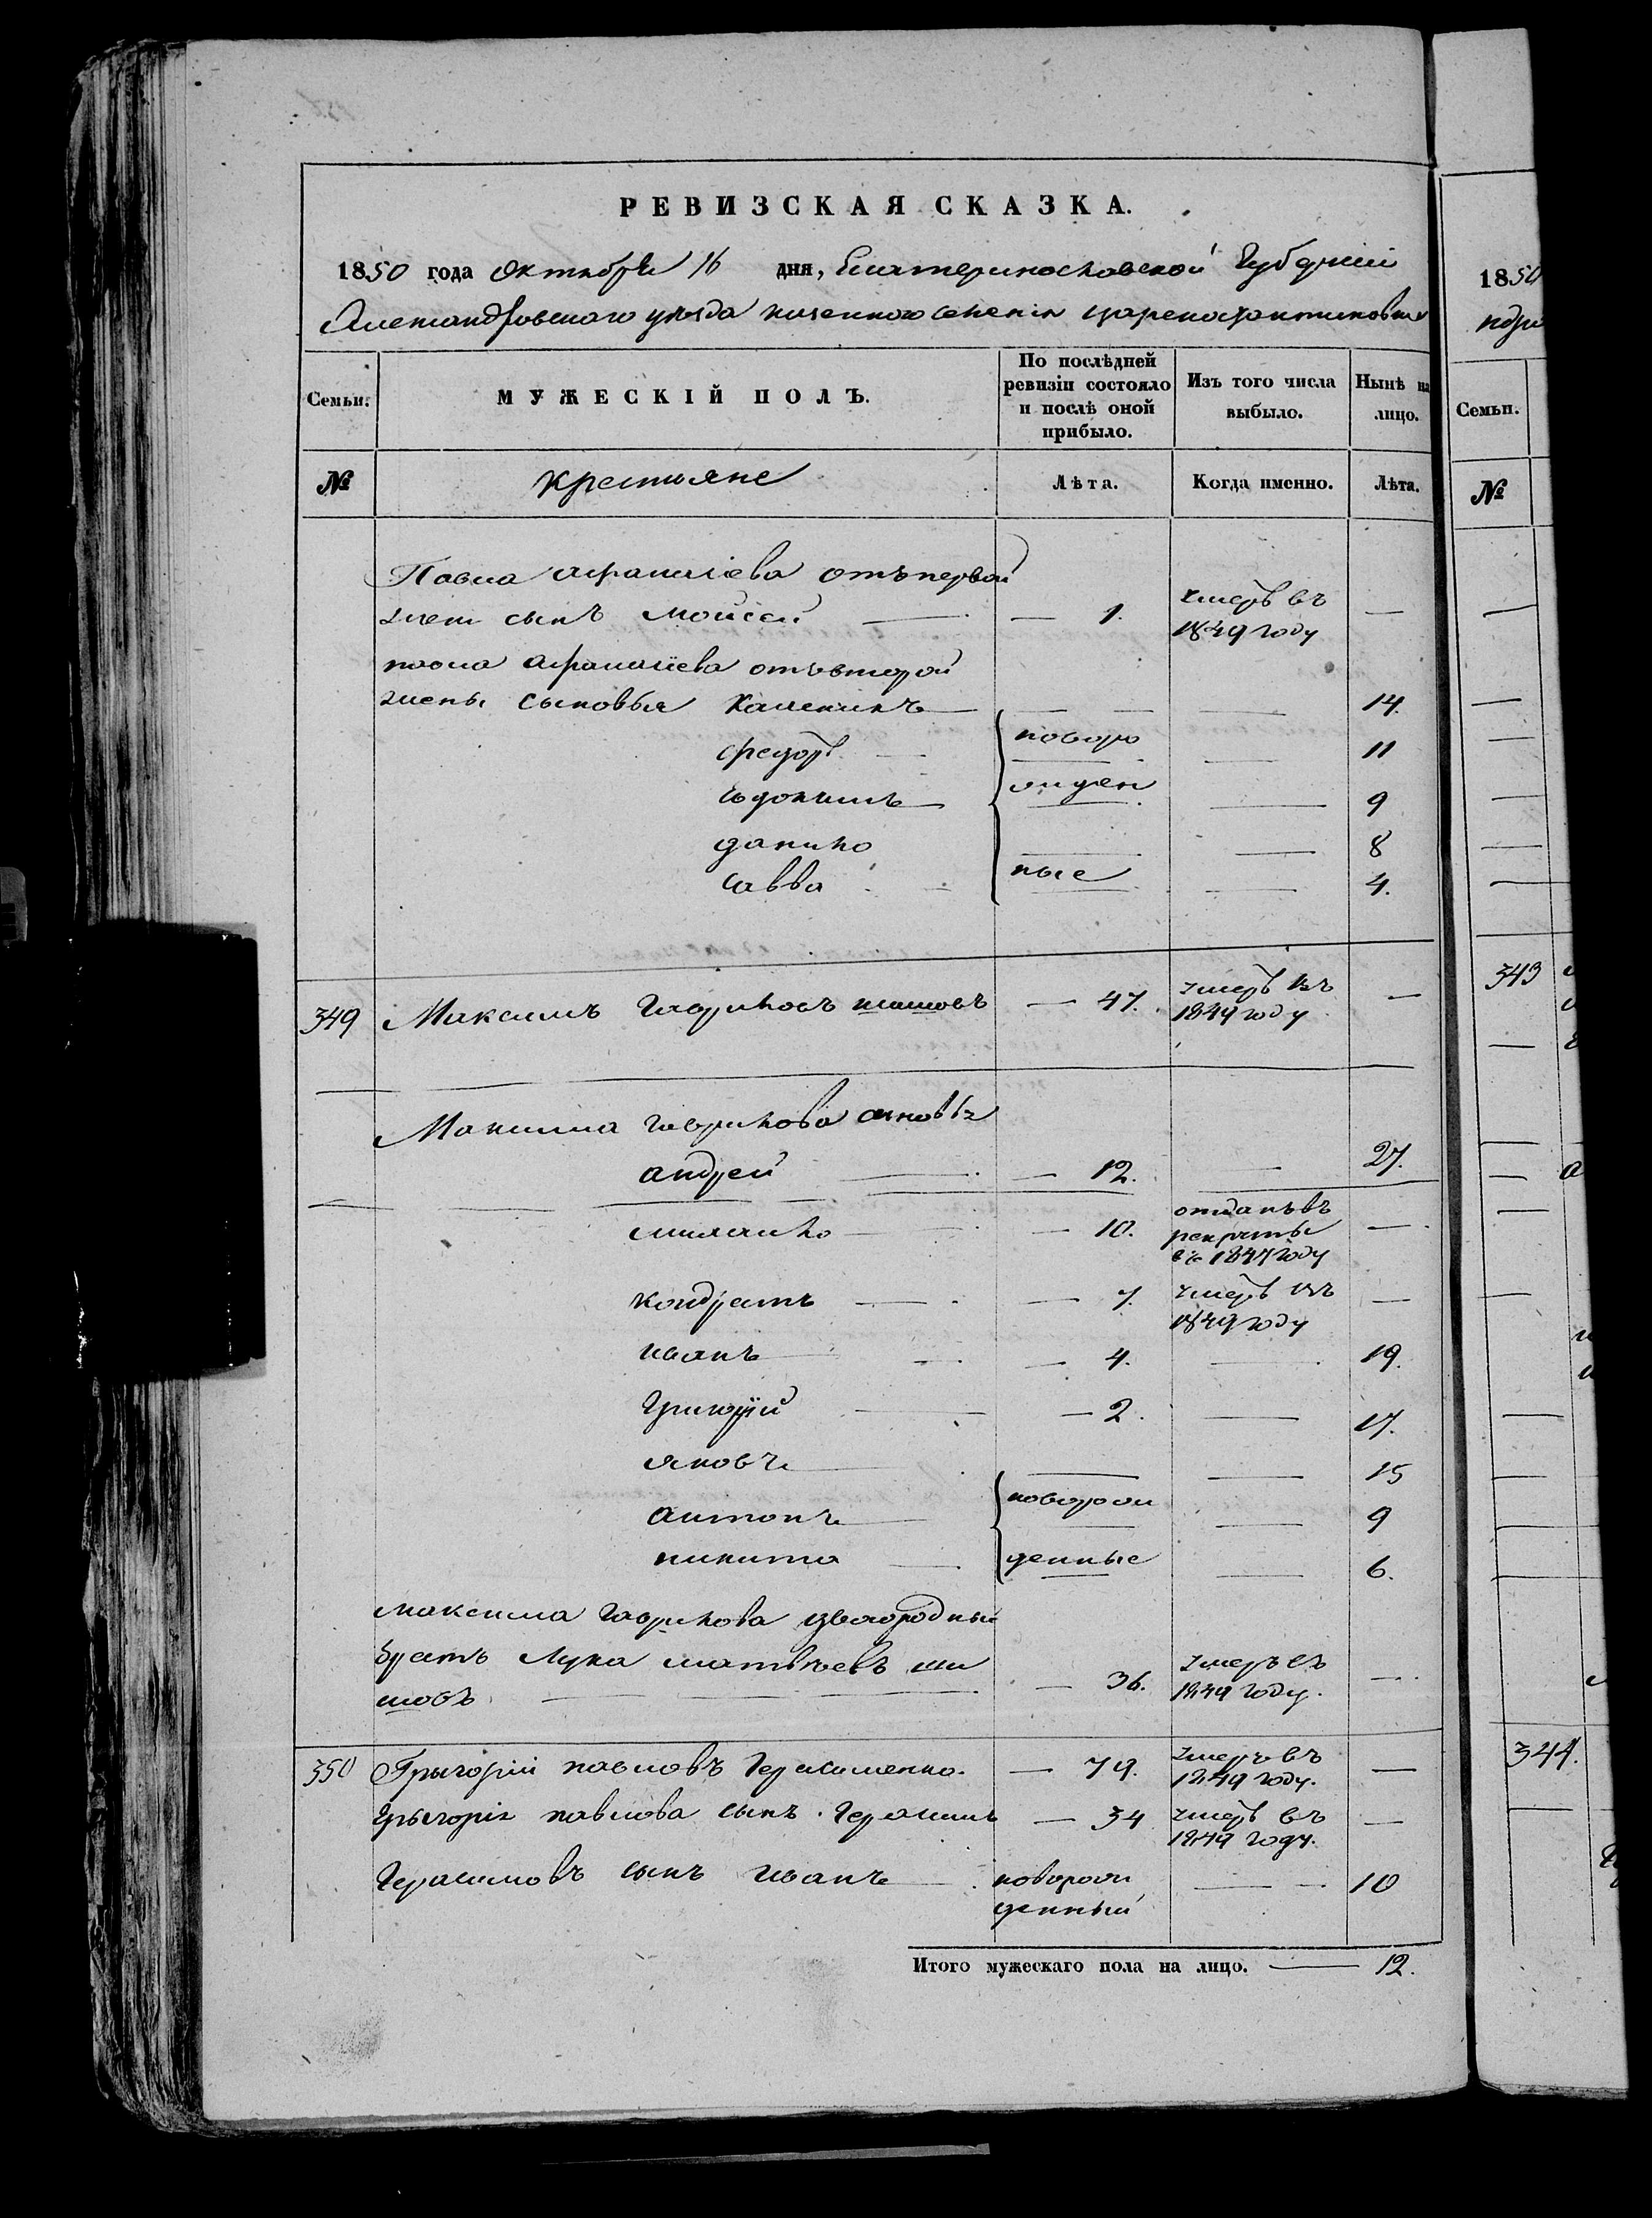 РЕВИЗСКАЯ СКАЗКА.
1850 года Октября 16 дня, Екатеринославской Губерніи
Александровскаго уѣзда казеннаго селенія Цареконстантиновки
Семьи. МУЖЕСКІЙ ПОЛЪ. По послѣдней ревизіи состояло и послѣ оной прибыло. Изъ того числа выбыло. Нынѣ на лицо.
№ Крестьяне Лѣта. Когда именно. Лѣта.
Павла Афанасіева отъ первой
жены сынъ Мойсей — 1. умеръ въ 1849 году —
павла Афанасіева отъ второй
жены сыновья Каленикъ — — 14.
федоръ — новоро — 11
Евдокимъ — жден — 9
данило — — 8
Савва — ные — 4.
349 Максимъ Гавриловъ шишовъ — 47. умеръ въ 1849 году —
Максима Гаврилова сыновья
андрей — 12. — 27.
михайло — 10. отданъ въ рекруты въ 1847 году —
кондратъ — 7. умеръ въ 1849 году —
иванъ — 4. — 19.
Григорій — 2. — 17.
яковъ — — 15
антонъ — новорож — 9
никита — денные — 6.
максима Гаврилова двоюродный
братъ Лука матвѣевъ ши
шовъ — 36. умеръ въ 1849 году. —
350 Григорій павловъ Герасименко — 79. умеръ въ 1849 году. —
Григорія павлова сынъ Герасимъ — 34 умеръ въ 1849 году. —
Герасимовъ сынъ иванъ — новорож
денный — 10
Итого мужескаго пола на лицо. — 12.
1850
Семьи.
№
343
344.